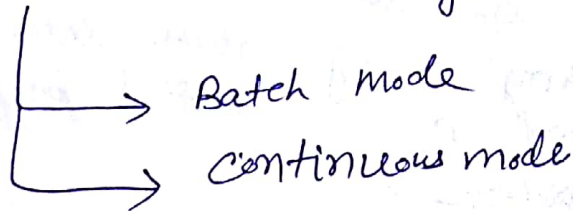 Batch mode
continuous mode